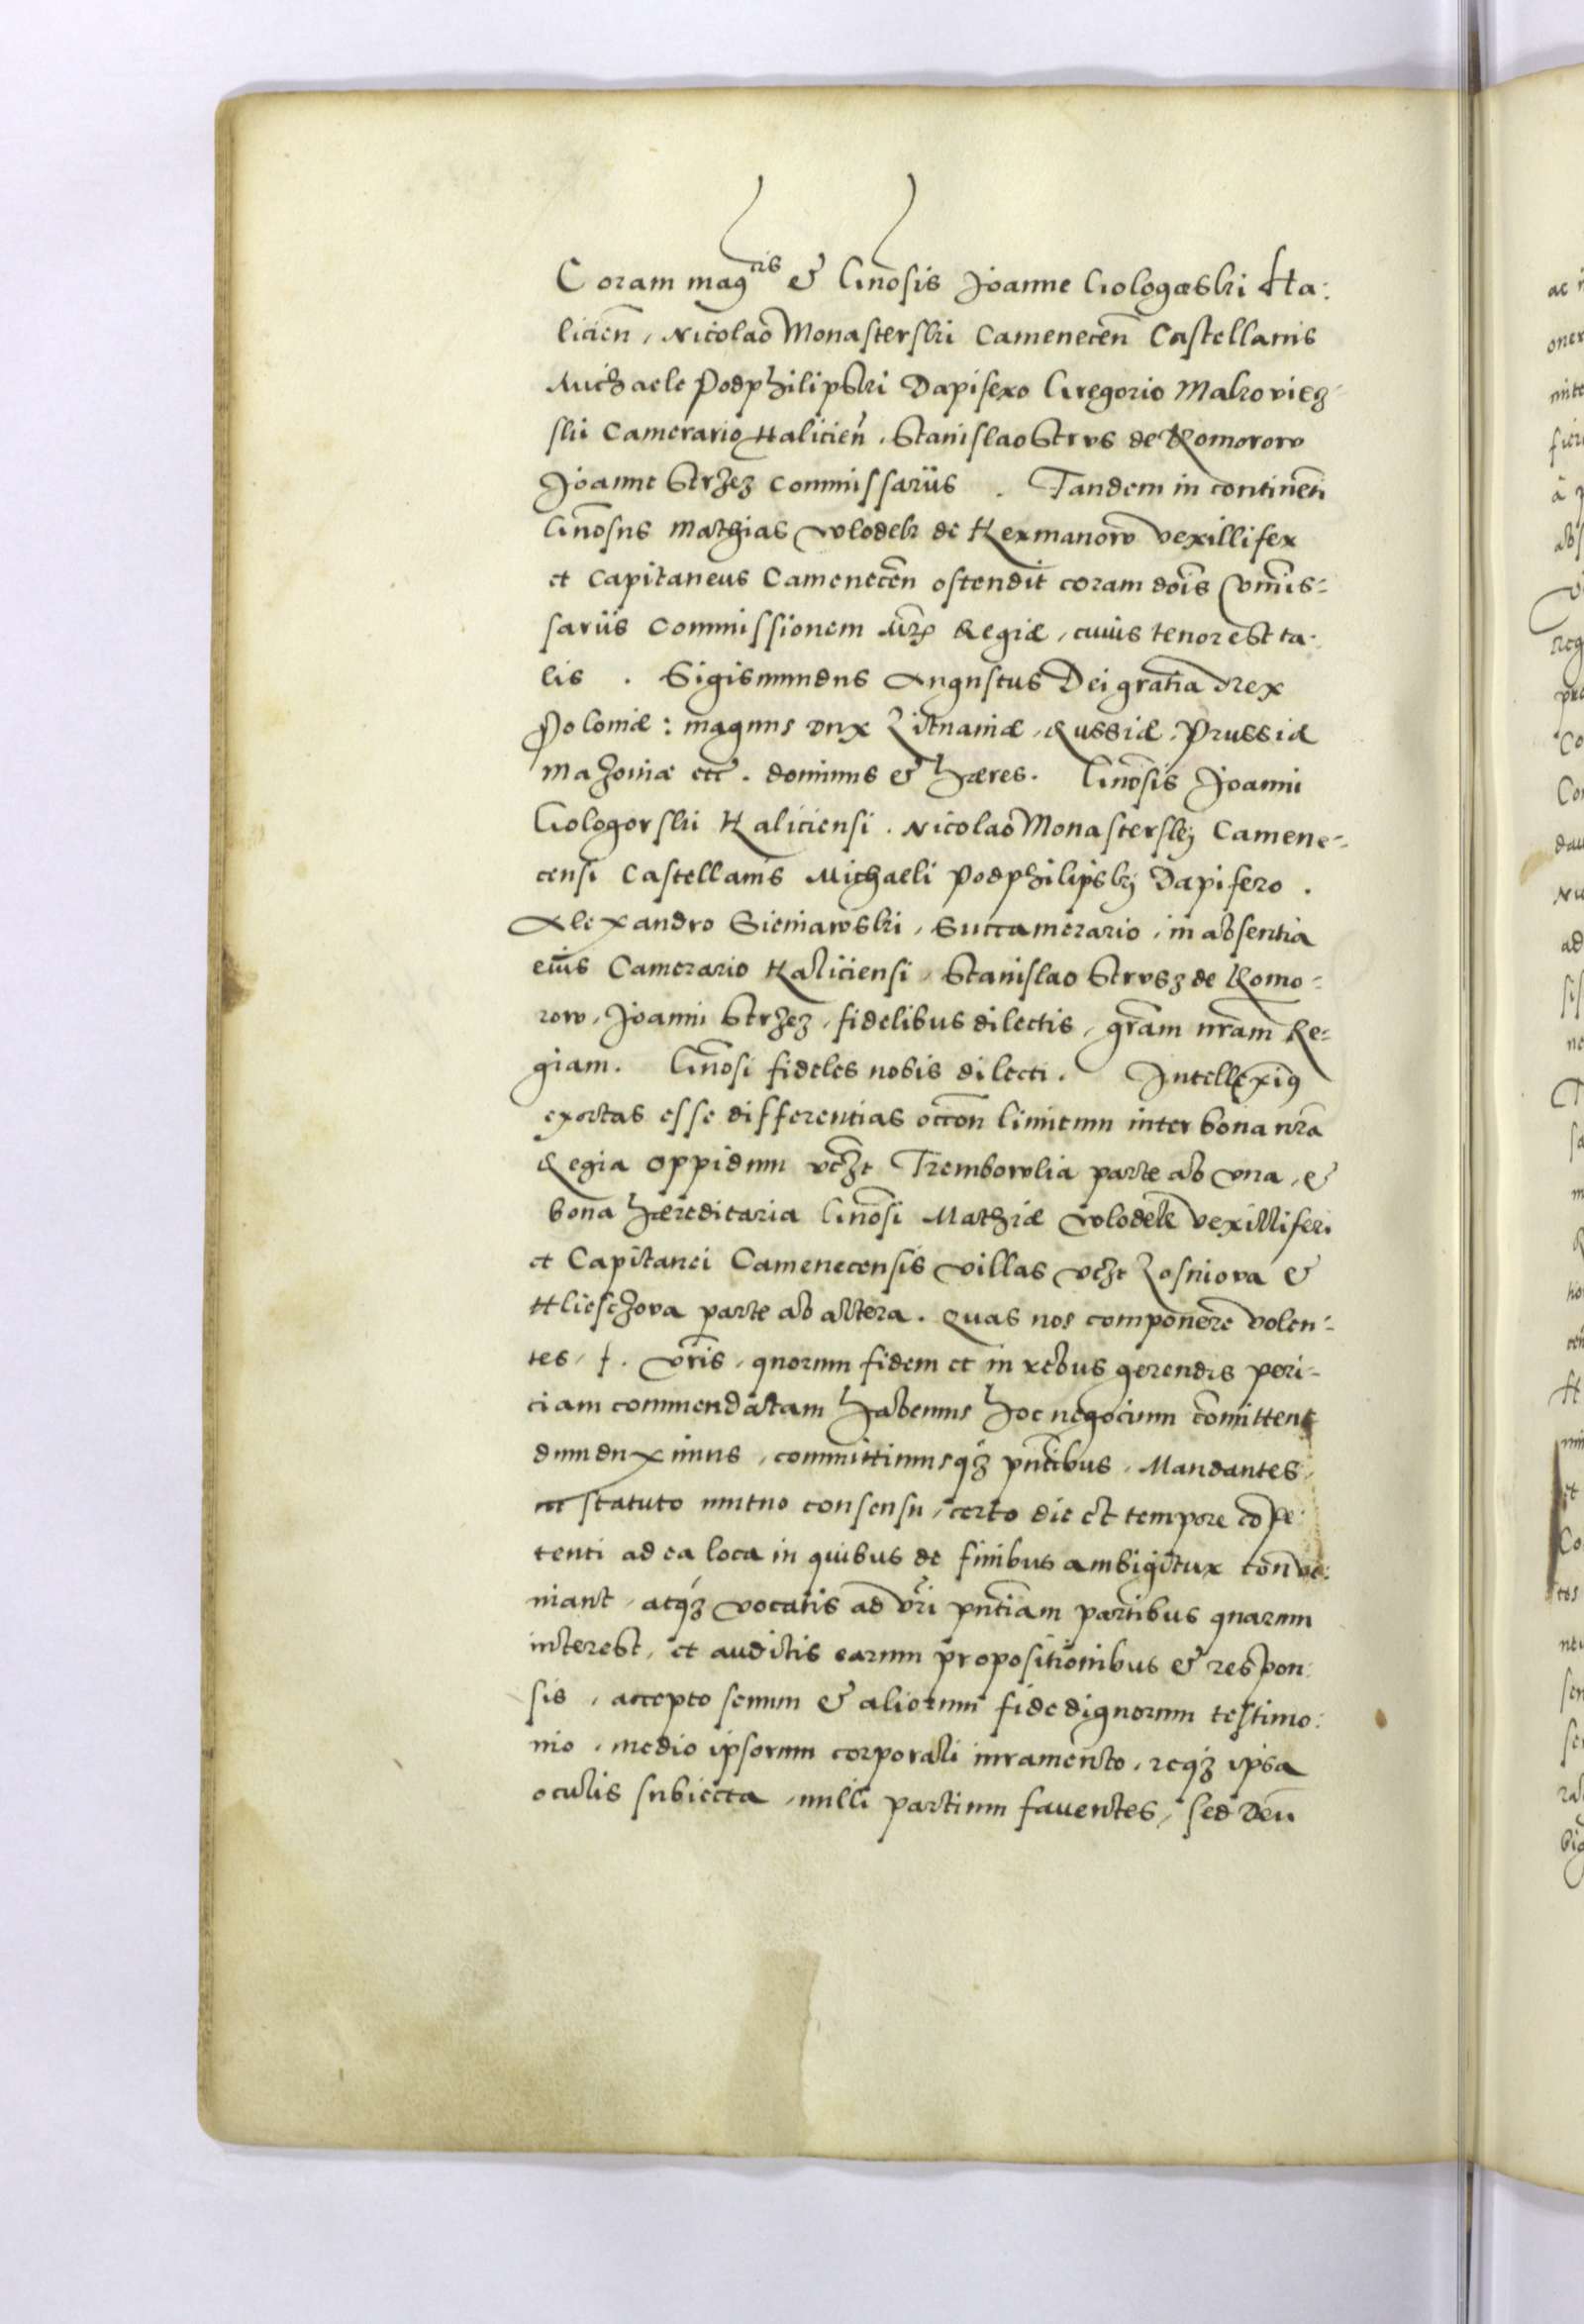 Coram mag^cis & Gñosis Joanne Gologoeski Ha:
licieñ, Nicolao Monasterski Camenecen̄ Castellanis
Michaele Podphilipski Dapifero Gregorio Makovieӡ-
skii Camerario Halicien̄, Stanislao Strus de Komorow
Joanne Strzeӡ Commissariis . Tandem in continen̄ti
Gñosus Mathias Wlodek de Hermanow vexillifer
et Capitaneus Camenecen̄ ostendit coram dōis Com̄is-
sariis Commissionem Regiæ, cuius tenor est ta-
lis . Sigismundus Augustus Dei gratia Rex
Poloniæ: magnus dux Litvaniæ, Russiæ, Prussiæ
Mazoviæ etc̄. dominus & hæres. Gñosis Joanni
Gologorskii Haliciensi. Nicolao Monasterskÿ Camene-
censi Castellanis Michaeli Podphilipskÿ Dapifero .
Alexandro Sieniawski, Succamerario, in absentia
eius Camerario Haliciensi, Stanislao Strusӡ de Komo-
row, Joanni Strzeӡ, fidelibus dilectis, grām nrām Re-
giam. Gñosi fideles nobis dilecti. Intellexim9
exortas esse differentias occōn limitum inter bona nrā
Regia oppidum vcȝt Trembowlia parte ab una, &
bona hæreditaria Gñosi Mathiæ Wlodek vexilliferi
et Capitanei Camenecensis villas vcȝt Losniova &
Hliesczova parte ab altera. Quas nos componere volen-
tes, f. vr̄is, quorum fidem et in rebus gerendis peri-
ciam commendatam habemus hoc negocium com̄itten-
dum duximus, committimusqȝ pn̄tibus, Mandantes,
ut statuto mutuo consensu, certo die et tempore cōpe-
tenti ad ea loca in quibus de finibus ambigitur conve:
niant, atqȝ vocatis ad vr̄i pn̄tiam partibus quarum
interest, et auditis earum propositionibus & respon:
sis, accepto senum & aliorum fide dignorum testimo:
nio, medio ipsorum corporali iuramento, reqȝ ipsa
oculis subiecta, nulli partium faventes, sed Deū